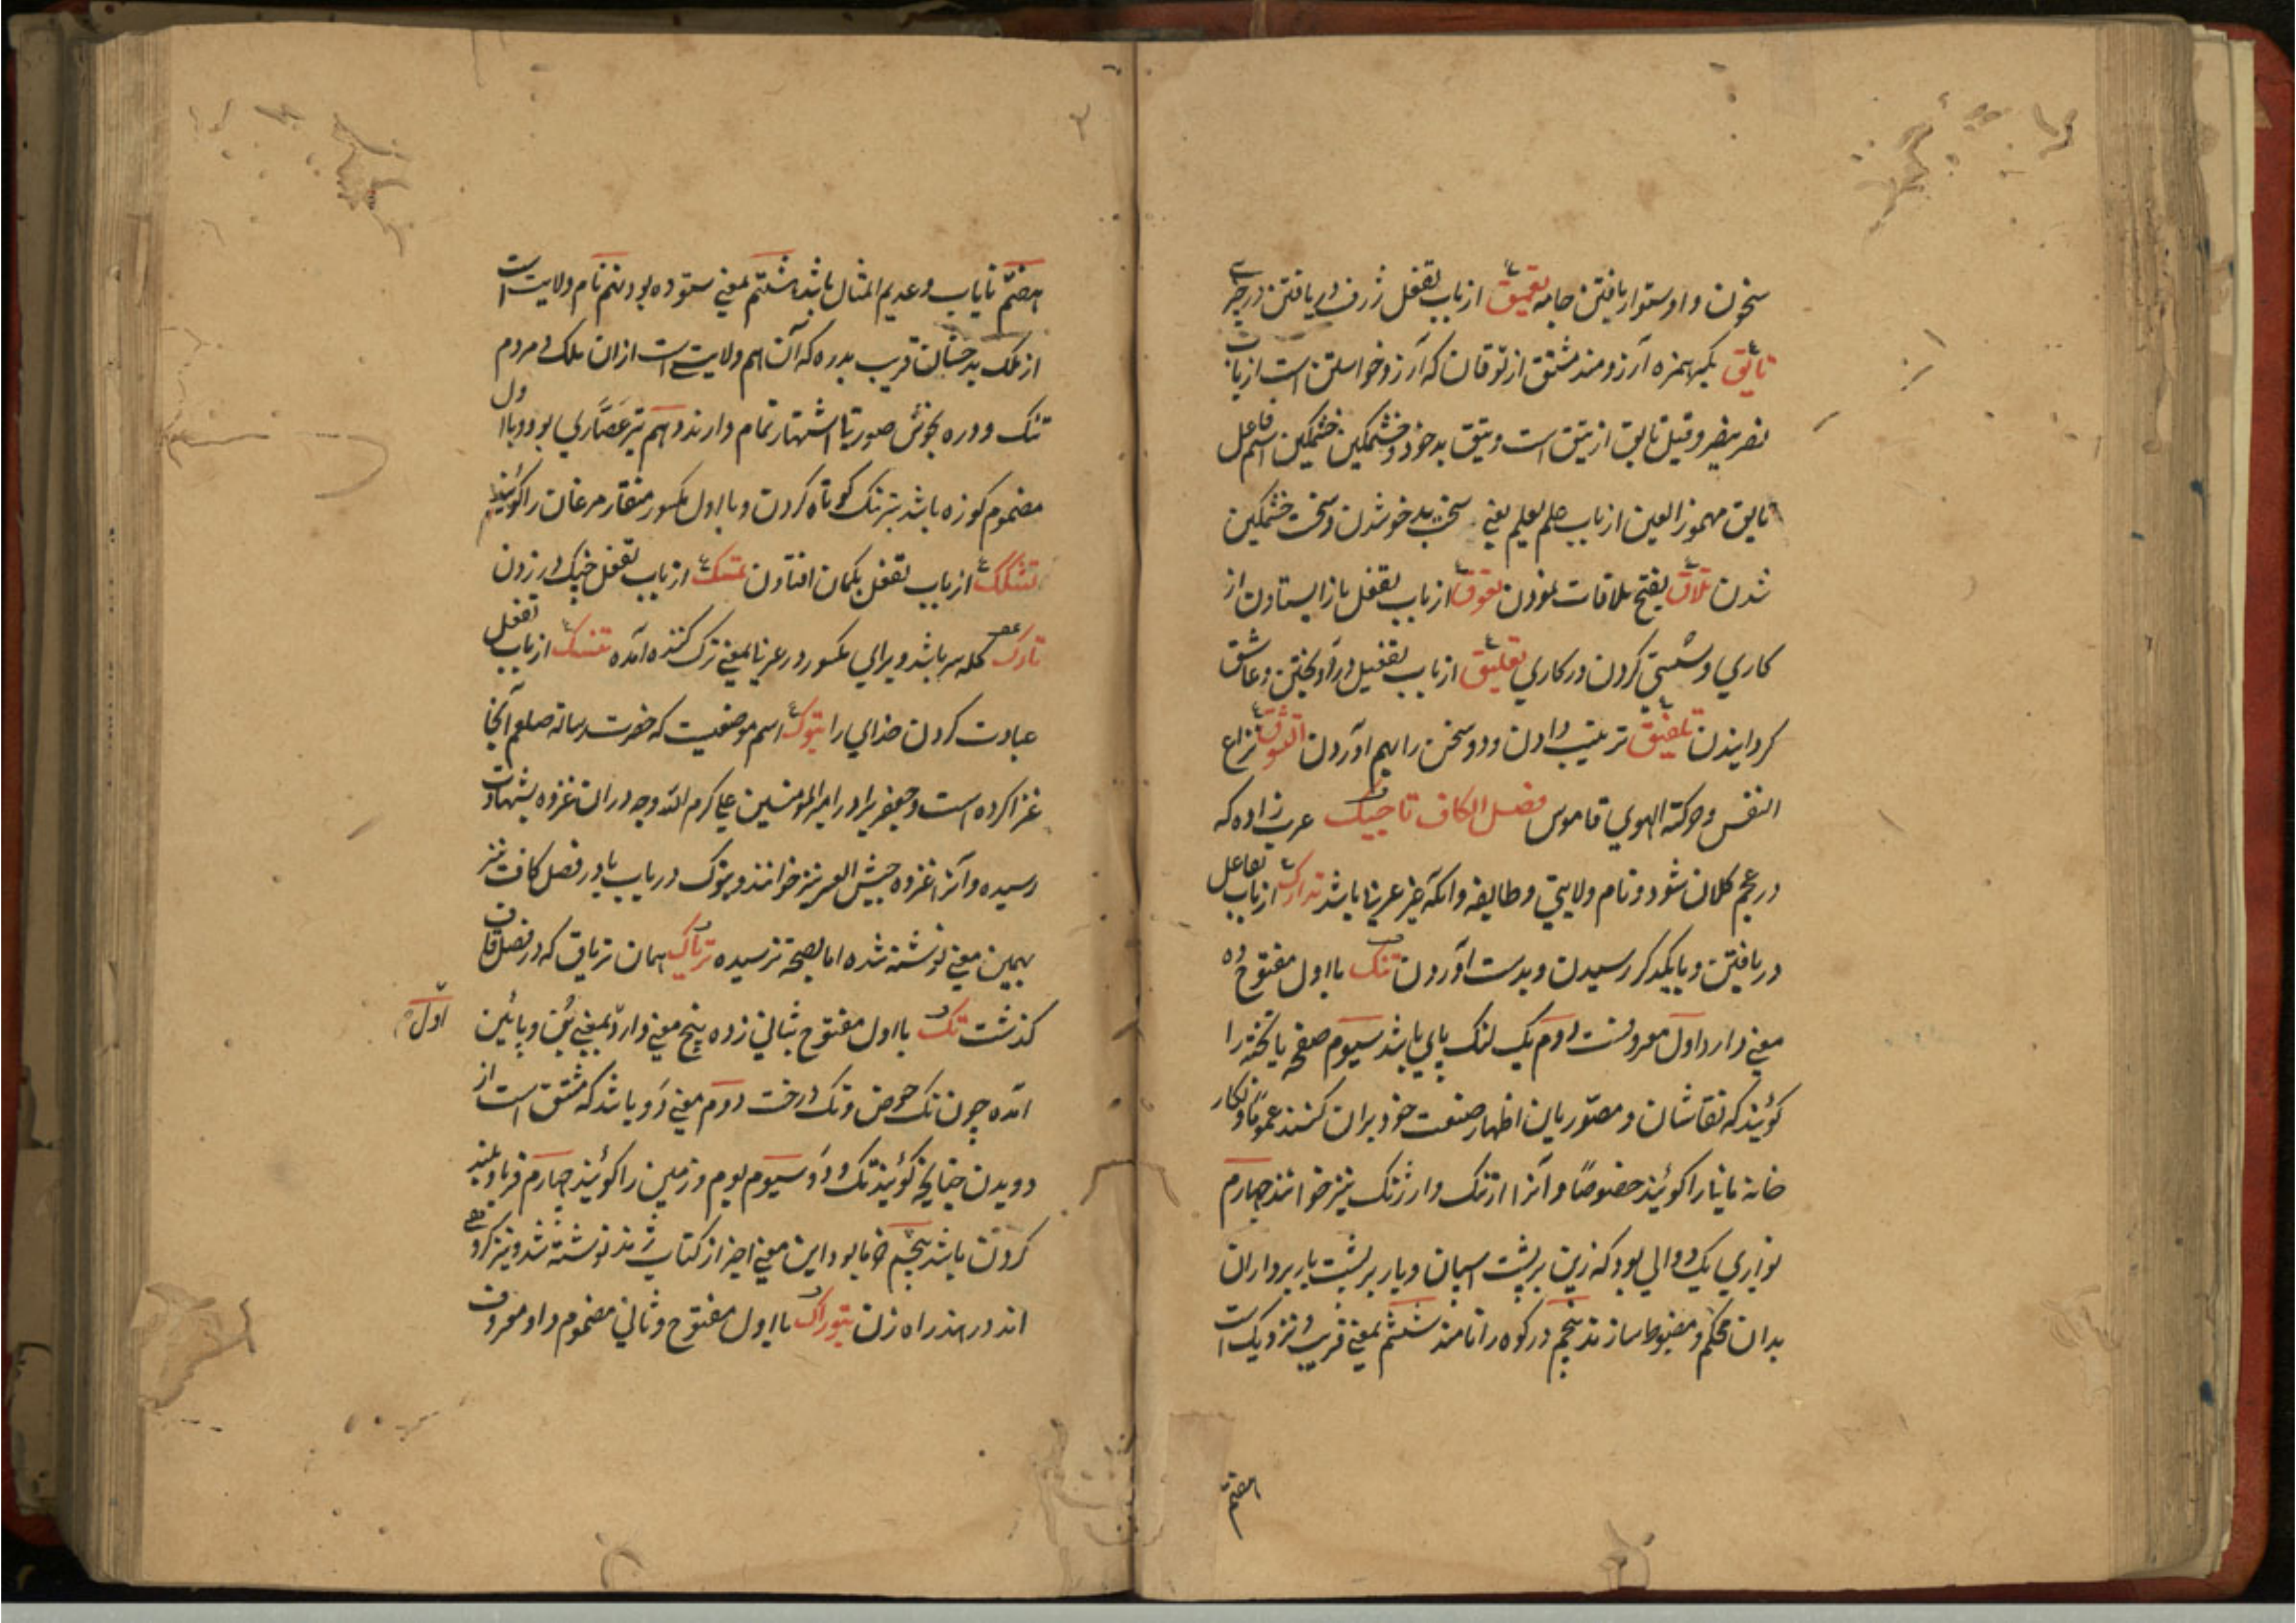 سخون و استوار بافتن جامه تعمیق از باب تفعل ژرف دریافتن در چیزے
تایق بکسر همزه آرزومند مشتق از توقان که آرزو خواستن است از باب
نصر ینصر و قیل تایق از تیق است و تیق بدخو و خشمکین خشمکین اسم فاعل
تایق مهموز العین از باب علم یعلم یعنی سخت بدخو شدن و سخت خشمکین
شدن تلاق بفتح ملاقات نمودن تعوق از باب تفعل باز ایستادن از
کاری و سستی کردن در کاری تعلیق از باب تفعیل در آویختن و عاشق
کردایندن تلفیق ترتیب دادن و دو سخن را بهم آوردن التوق نزاع
النفس و حرکته الهوی قاموس فصل الکاف تاجیک عرب زاده که
در عجم کلان شود و نام ولایتی و طایفه و انکه غیر عرب باشد تدارک از باب تفاعل
دریافتن و بایکدکر رسیدن و بدست آوردن تنک با اول مفتوح ده
معنی دارد اول معروفست دوم یک لنک باری باشد سیوم صفحه یا تخته را
کویند که نقاشان و مصوریان اظهار صنعت خود بران کنند عموما و نکار
خانه مانی را کویند خصوصا و آنرا ارتنک و ارژنک نیز خوانند چهارم
نواری یک دوالی بود که زین بر پشت اسپان و بار بر پشت باربرداران
بدان محکم و مضبوط سازند پنجم در کوه را نامند ششم بمعنی قریب و نزدیک است
هفتم
هفتم نایاب و عدیم المثال باشد هشتم بمعنی ستوده بود نهم نام ولایت است
از ملک بدخشان قریب بدره که آن هم ولایتی است ازان ملک و مردم
تنک و دره بخوش صورتی اشتهار تمام دارند دهم تیر عصاری بود و با اول
مضموم کوزه باشد تیرتنک کوتاه کردن و با اول مکسور منقار مرغان را کویند
تشکک از باب تفعل بکمان افتادن تمسک از باب تفعل چنک در زدن
تارک کله سر باشد و برای مکسور در عربی بمعنی ترک کننده آمده تنسک از باب تفعل
عبادت کردن خدای را تبوک اسم موضعیست که حضرت رساله صلعم آنجا
غزا کرده است و جعفر برادر امیرالمومنین علی کرم الله وجه دران غزوه بشهادت
رسیده و آنرا غزوه جیش العسر نیز خوانند و بتوک در باب با در فصل کاف نیز
بهمین معنی نوشته شده اما بصحة نرسیده تریاک همان تریاق که در فصل قاف
کذشت تک با اول مفتوح بثانی زده پنج معنی دارد بمعنی بُن و پائین
اول
آمده چون تک حوض و تک درخت دوم معنی دَو باشد که مشتق است از
دویدن چنانچه کویند تک و دَو سیوم بوم و زمین را کویند چهارم فریاد بلند
کردن باشد پنجم خرما بود این معنی اخیر از کتاب ژند نوشته شد و نیز کروهی
اند در هند راه زن تبوراک با اول مفتوح و ثانی مضموم و واو معروف